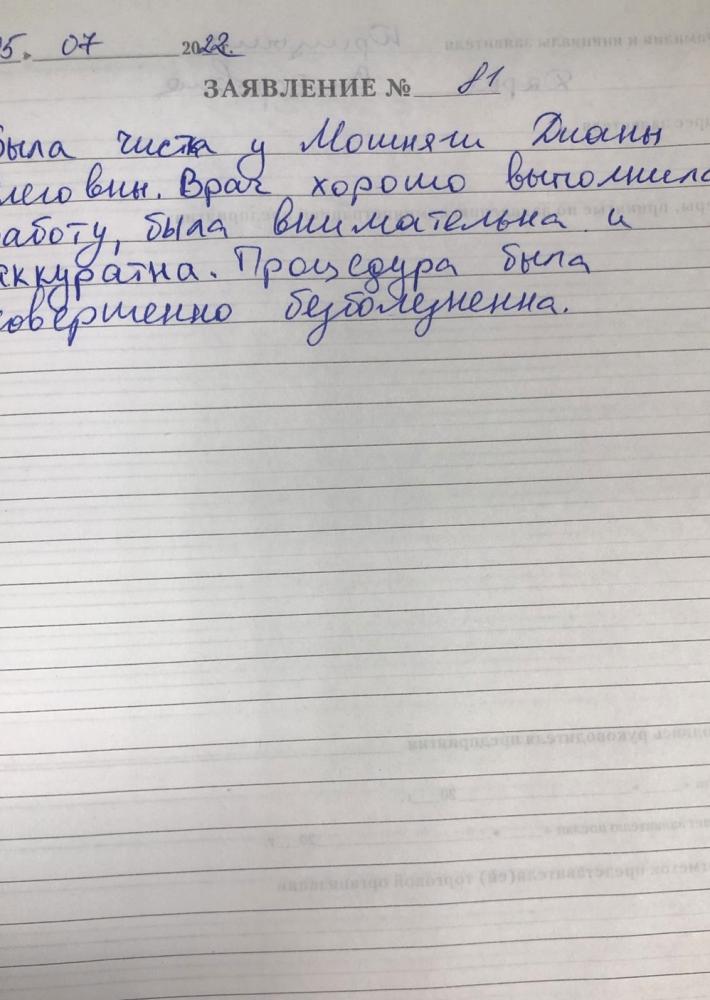 5. 07 2022
ЗАЯВЛЕНИЕ № 81
была чистка у Мошняги Дианы
леговны. Врач хорошо выполнила
работу, была внимательна и
аккуратна. Процедура была
совершенно безболезненна.